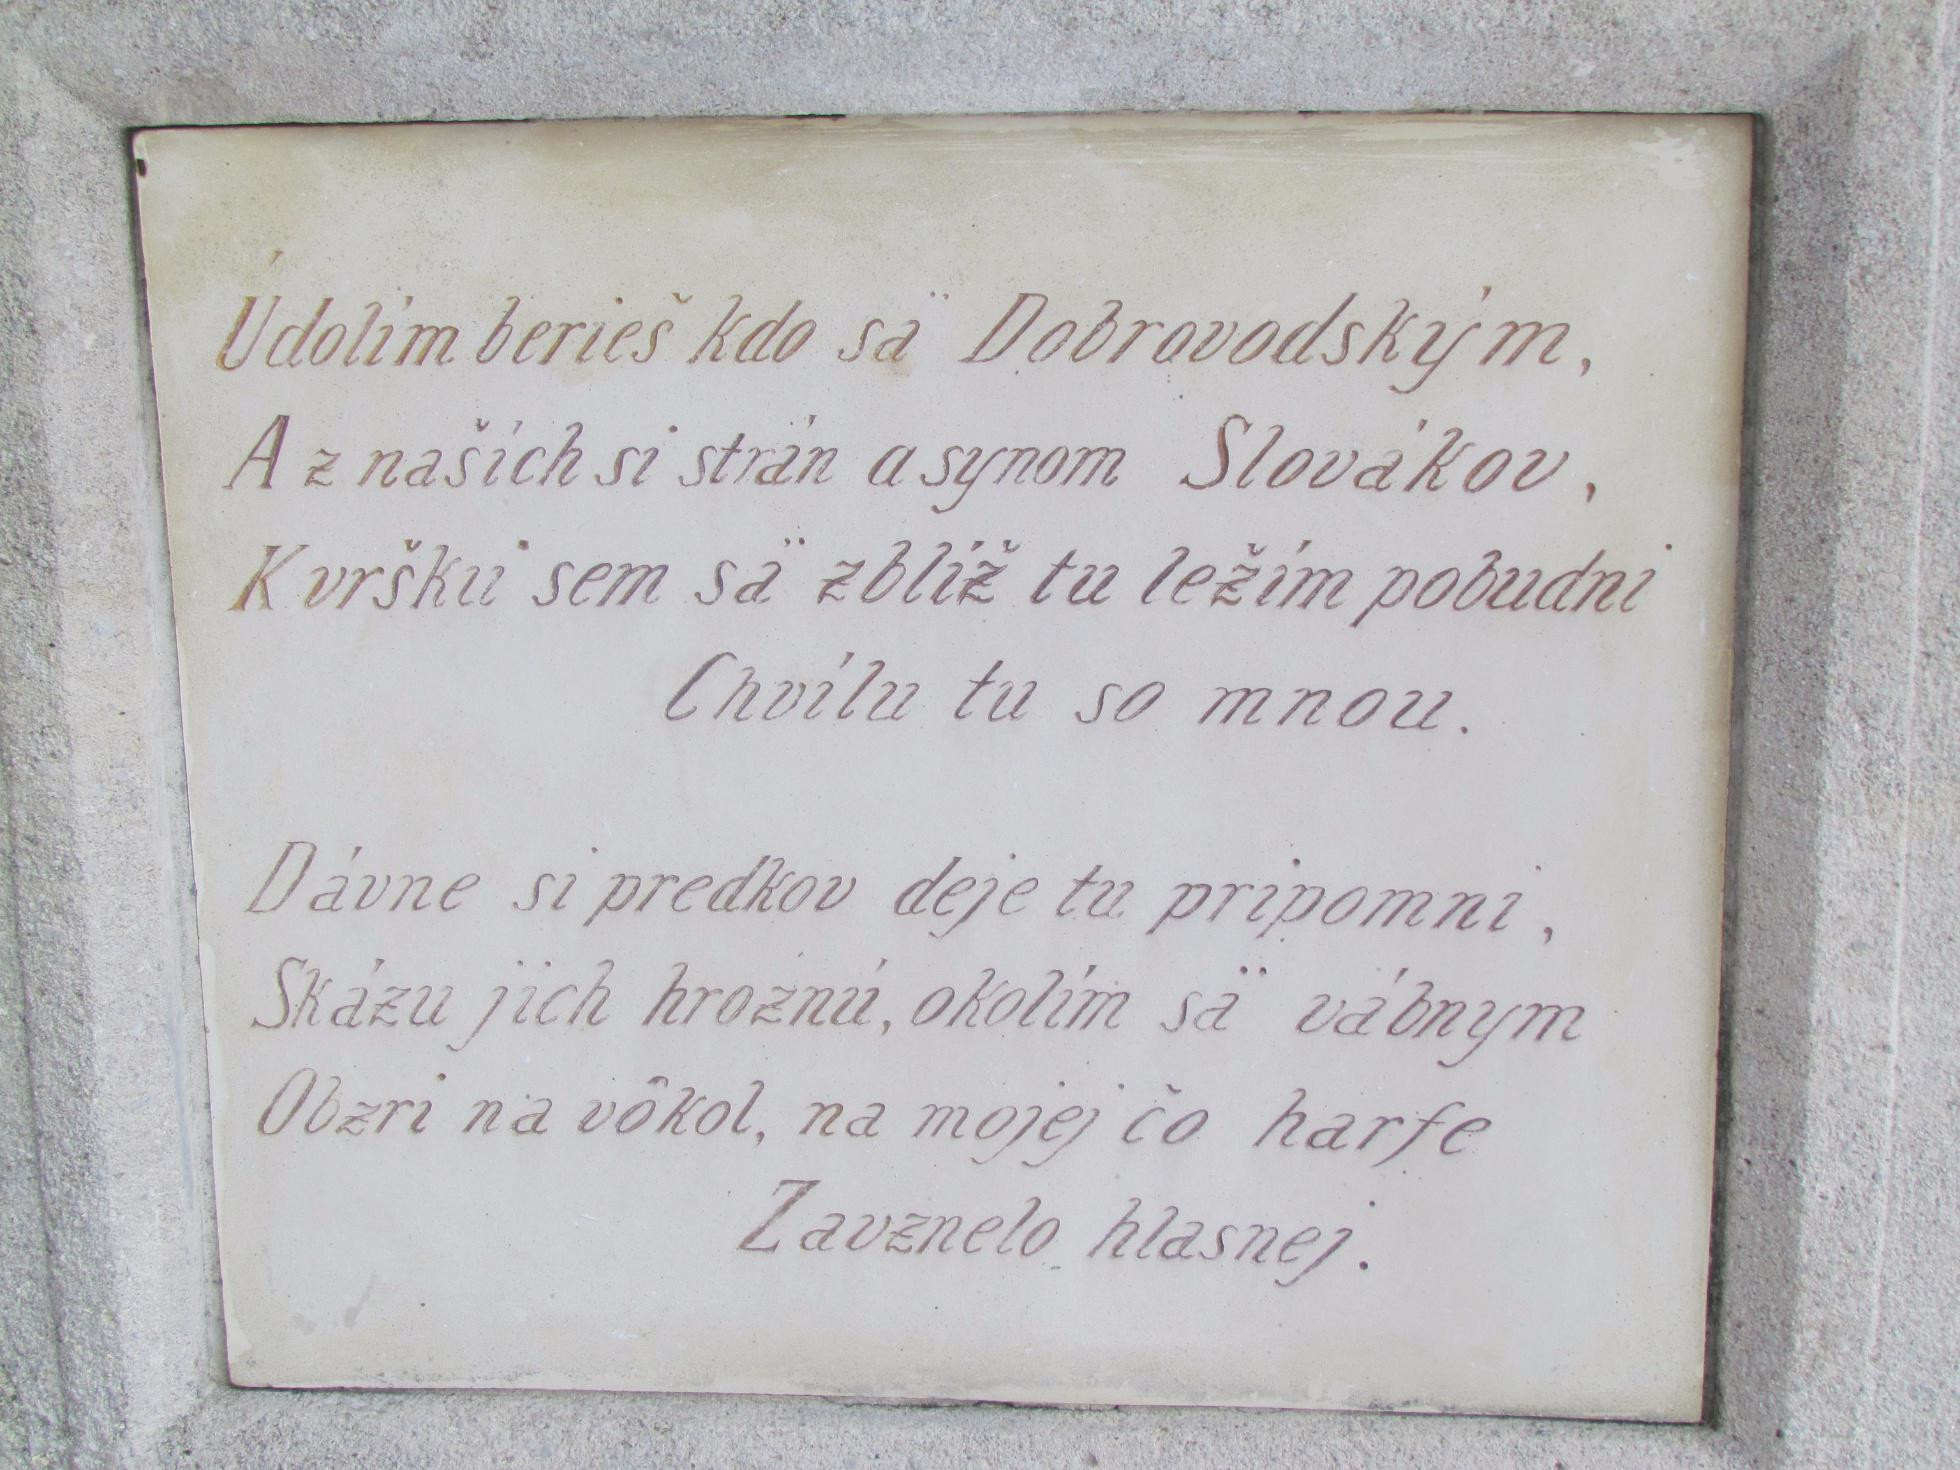 Údolím berieš kdo sä Dobrovodským,
A z naších si strán a synom Slovákov,
K vršku sem sä zblíž tu ležím pobudni
Chvílu tu so mnou.
Dávne si predkov deje tu pripomni,
Skázu jich hroznú, okolím sä vábnym
Obzri na vôkol, na mojej čo harfe
Zavznelo hlasnej.